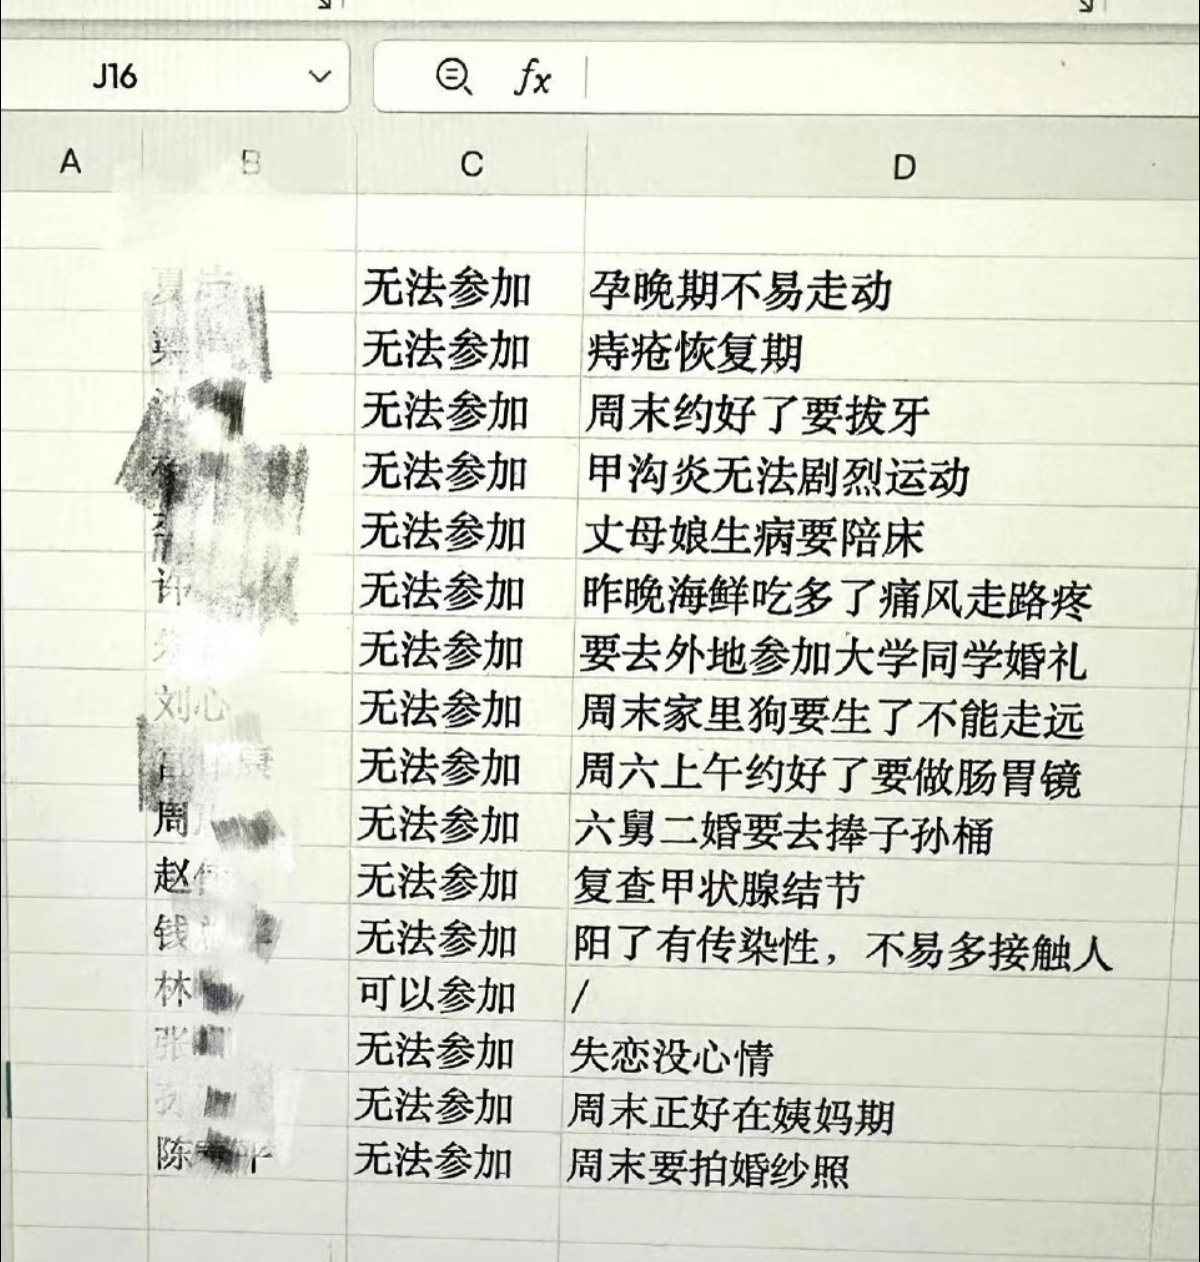 J16 fx
A B C D
无法参加 孕晚期不易走动
无法参加 痔疮恢复期
无法参加 周末约好了要拔牙
无法参加 甲沟炎无法剧烈运动
无法参加 丈母娘生病要陪床
许 无法参加 昨晚海鲜吃多了痛风走路疼
无法参加 要去外地参加大学同学婚礼
刘心 无法参加 周末家里狗要生了不能走远
康 无法参加 周六上午约好了要做肠胃镜
周 无法参加 六舅二婚要去捧子孙桶
赵 无法参加 复查甲状腺结节
钱 无法参加 阳了有传染性，不易多接触人
林 可以参加 /
张 无法参加 失恋没心情
无法参加 周末正好在姨妈期
陈 无法参加 周末要拍婚纱照